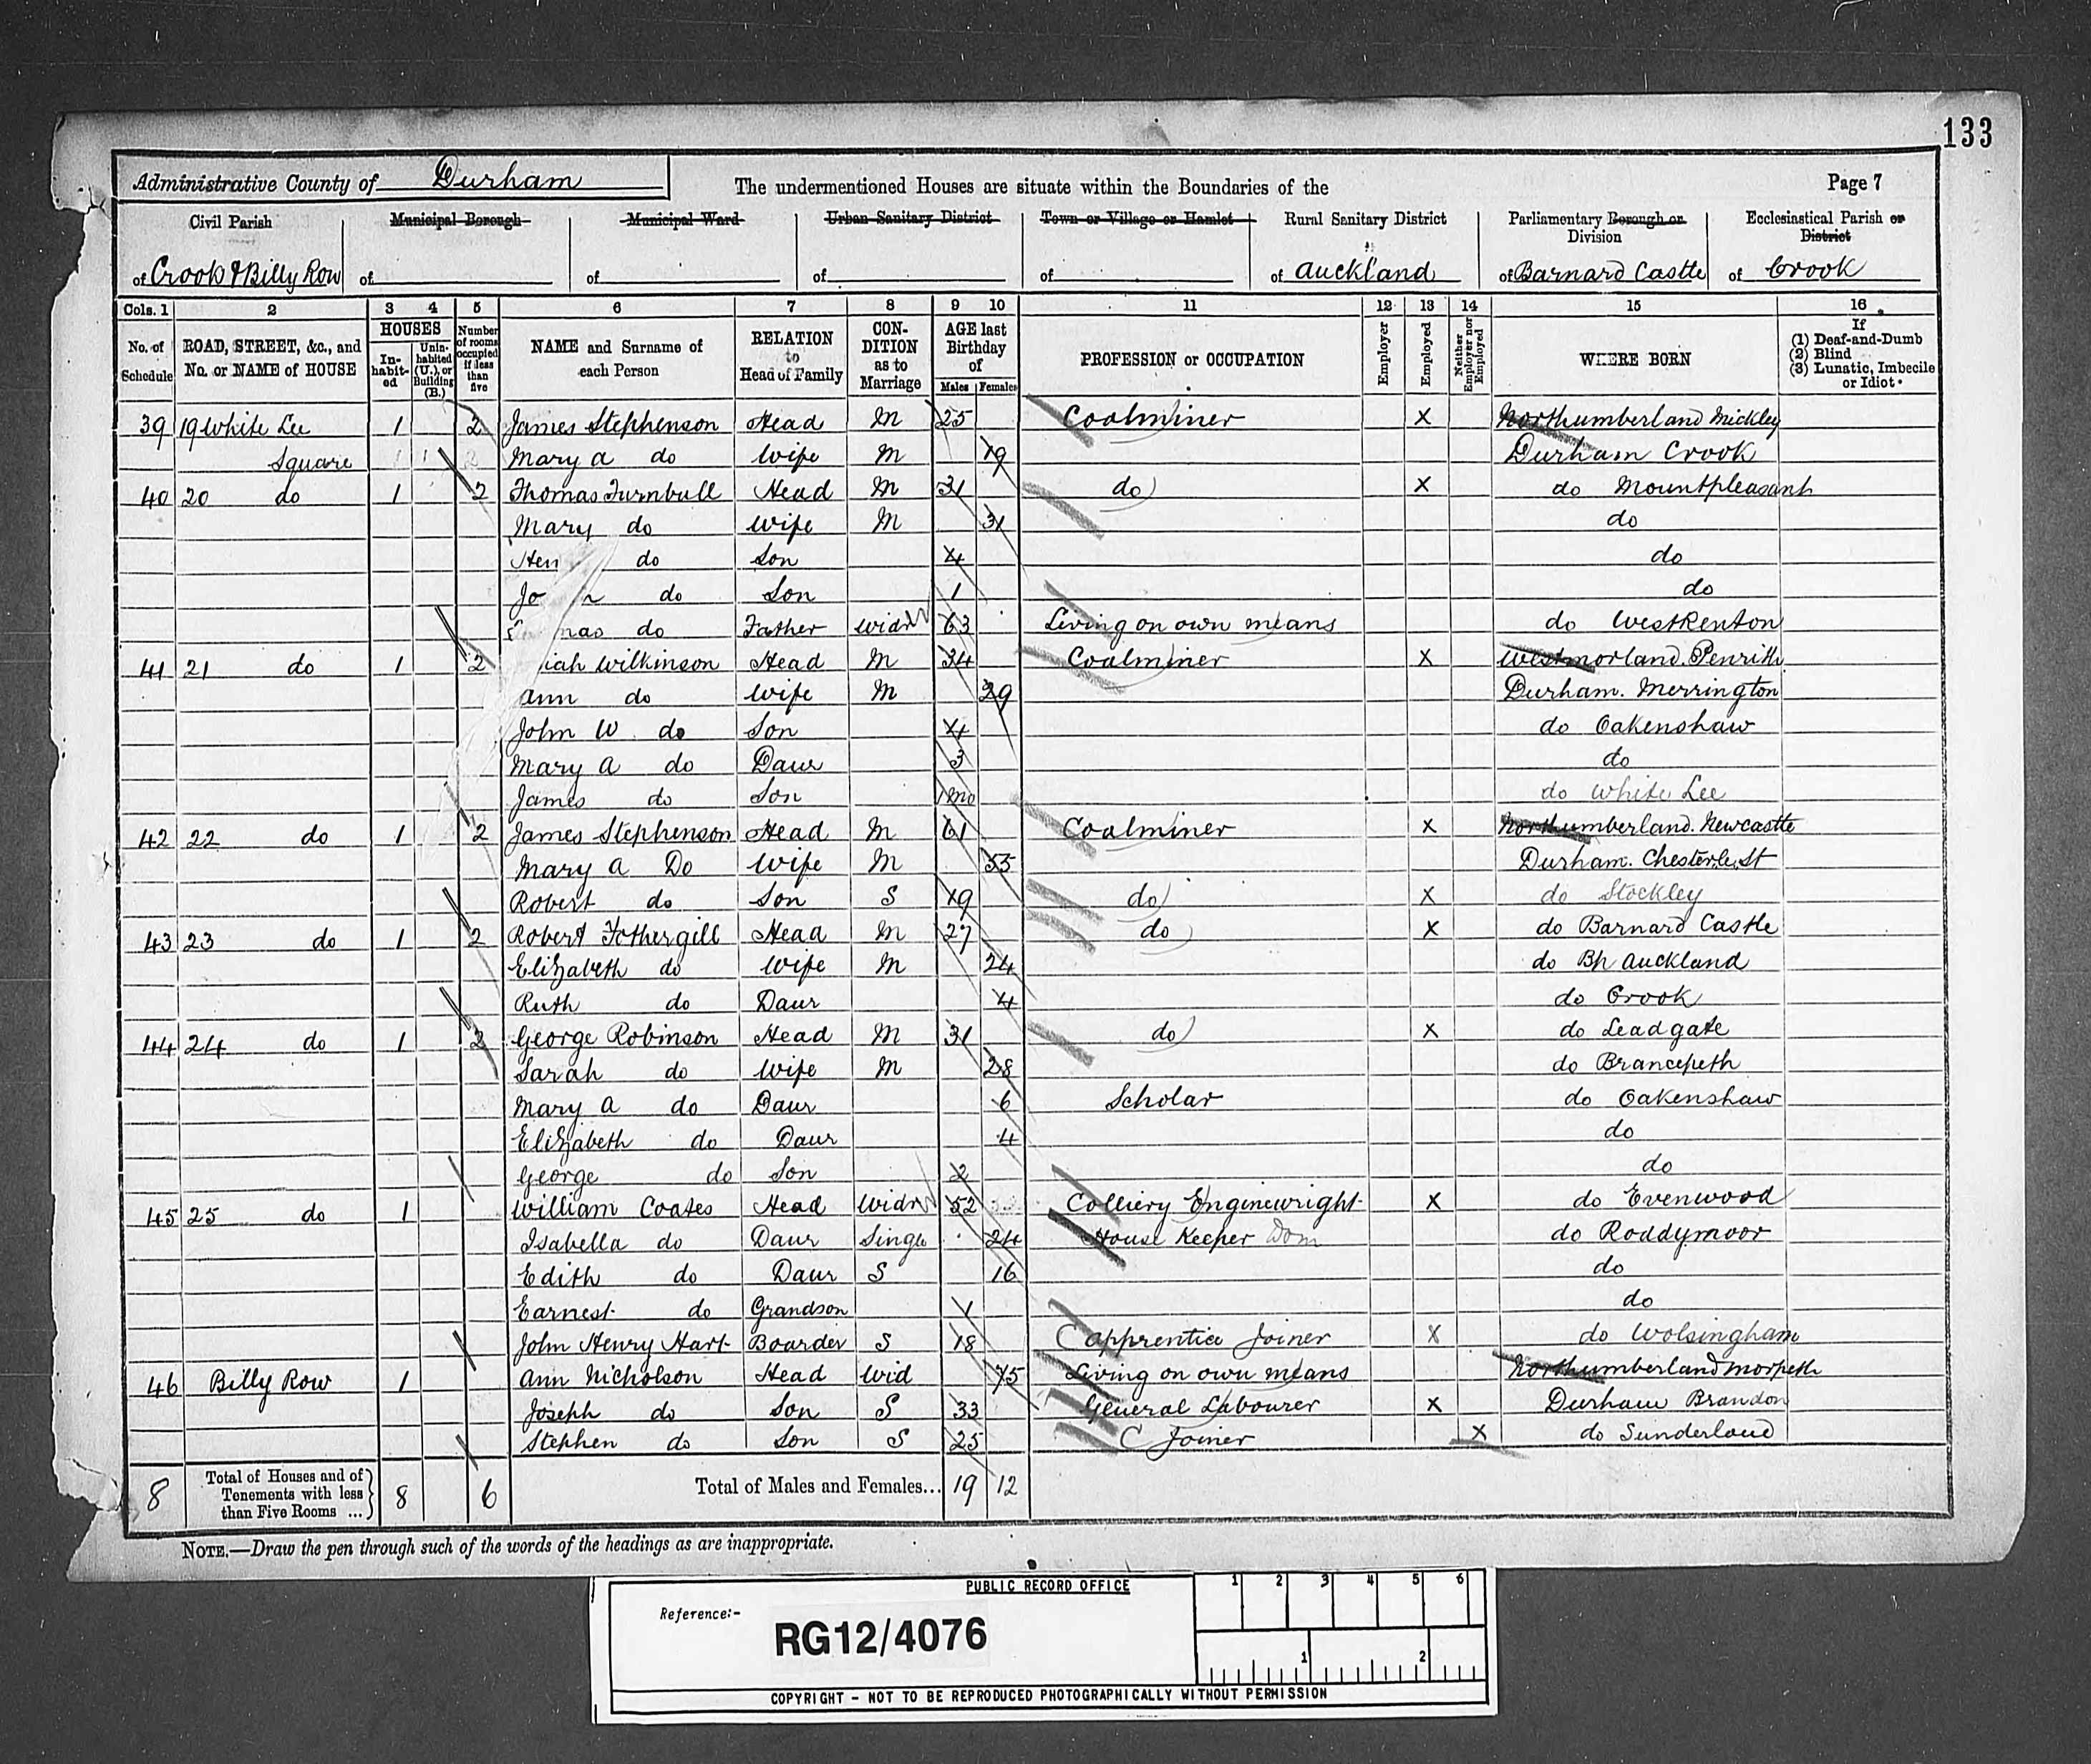 133
Administrative County of Durham
The undermentioned Houses are situate within the Boundaries of the
Page 7
Civil Parish of Crook & Billy Row
Municipal Borough of
Municipal Ward of
Urban Sanitary District of
Town or Village or Hamlet of
Rural Sanitary District of Auckland
Parliamentary Borough or Division of Barnard Castle
Ecclesiastical Parish or District of Crook
Cols. 1 2 3 4 5 6 7 8 9 10 11 12 13 14 15 16
No. of Schedule
ROAD, STREET, &c., and No. or NAME of HOUSE
HOUSES
In-habit-ed
Unin-habited (U.), or Building (B.)
Number of rooms occupied if less than five
NAME and Surname of each Person
RELATION to Head of Family
CON-DITION as to Marriage
AGE last Birthday of
Males Females
PROFESSION or OCCUPATION
Employer
Employed
Neither Employer nor Employed
WHERE BORN
If
(1) Deaf-and-Dumb
(2) Blind
(3) Lunatic, Imbecile or Idiot
39 19 White Lee 1 2 James Stephenson Head M 25 Coalminer X Northumberland Mickley
Square Mary A do Wife M 19 Durham Crook
40 20 do 1 2 Thomas Turnbull Head M 31 do X do Mountpleasant
Mary do Wife M 31 do
Hen do Son 4 do
Jo n do Son 1 do
mas do Father Widr 63 Living on own means do West Renton
41 21 do 1 2 iah Wilkinson Head M 34 Coalminer X Westmorland. Penrith
Ann do Wife M 29 Durham. Merrington
John W do Son 4 do Oakenshaw
Mary A do Daur 3 do
James do Son 1mo do White Lee
42 22 do 1 2 James Stephenson Head M 61 Coalminer X Northumberland. Newcastle
Mary A Do Wife M 55 Durham. Chesterle St
Robert do Son S 19 do X do Stockley
43 23 do 1 2 Robert Fothergill Head M 27 do X do Barnard Castle
Elizabeth do Wife M 24 do Bp Auckland
Ruth do Daur 4 do Crook
44 24 do 1 2 George Robinson Head M 31 do X do Leadgate
Sarah do Wife M 28 do Brancepeth
Mary A do Daur 6 Scholar do Oakenshaw
Elizabeth do Daur 4 do
George do Son 2 do
45 25 do 1 William Coates Head Widr 52 Colliery Enginewright X do Evenwood
Isabella do Daur Single 24 House Keeper Dom do Roddymoor
Edith do Daur S 16 do
Earnest do Grandson 1 do
John Henry Hart Boarder S 18 C Apprentice Joiner X do Wolsingham
46 Billy Row 1 Ann Nicholson Head Wid 75 Living on own means Northumberland Morpeth
Joseph do Son S 33 General Labourer X Durham Brandon
Stephen do Son S 25 C Joiner X do Sunderland
8 Total of Houses and of Tenements with less than Five Rooms ... 8 6 Total of Males and Females... 19 12
NOTE.—Draw the pen through such of the words of the headings as are inappropriate.
PUBLIC RECORD OFFICE
1 2 3 4 5 6
Reference:-
RG12/4076
1 2
COPYRIGHT - NOT TO BE REPRODUCED PHOTOGRAPHICALLY WITHOUT PERMISSION